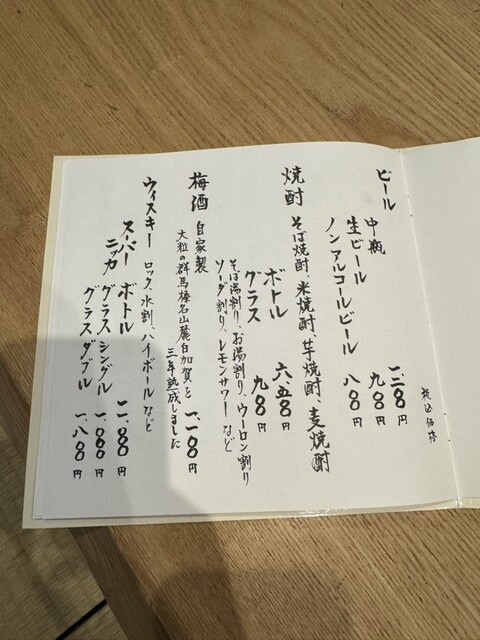 税込価格
ビール
中瓶
生ビール 九〇〇円
ノンアルコールビール 八〇〇円
焼酎
そば焼酎、米焼酎、芋焼酎、麦焼酎
ボトル 六、五〇〇円
グラス 九〇〇円
そば湯割り、お湯割り、ウーロン割り
ソーダ割り、レモンサワーなど
梅酒 自家製 一、一〇〇円
大粒の群馬榛名山麓白加賀を
三年熟成しました
ウィスキー ロック、水割、ハイボールなど
スーパーニッカ
ボトル
グラスシングル
グラスダブル 一、八〇〇円